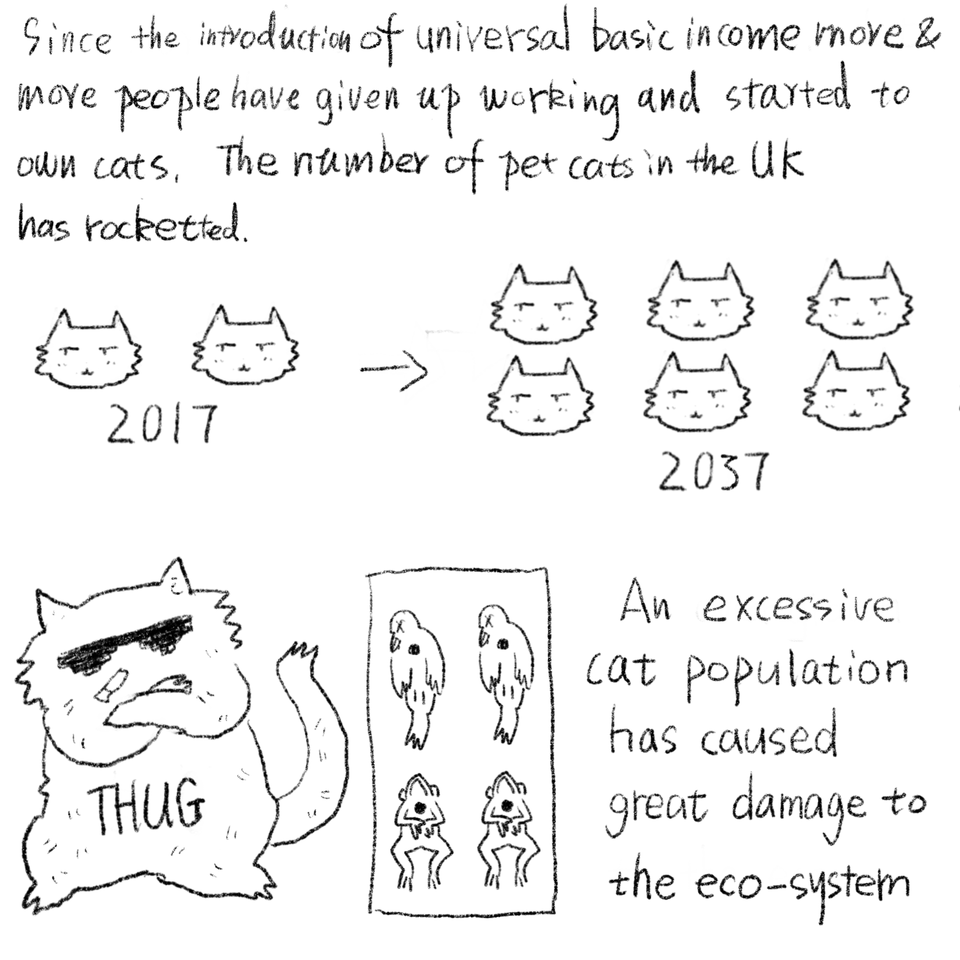 Since the introduction of universal basic income more &
more people have given up working and started to
own cats. The number of pet cats in the UK
has rocketted.
2017
2037
THUG
An excessive
cat population
has caused
great damage to
the eco-system